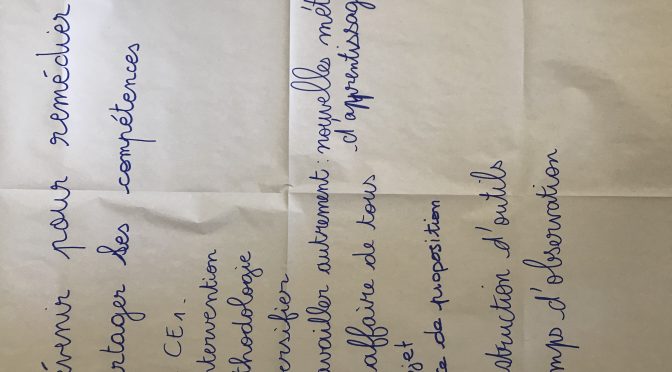 évenir pour remédier
rtager ses compétences
CE1.
tervention
thodologie
ersifier
availler autrement : nouvelles mét
d'apprentissag
affaire de tous
jet
de proposition
struction d'outils
mps d'observation